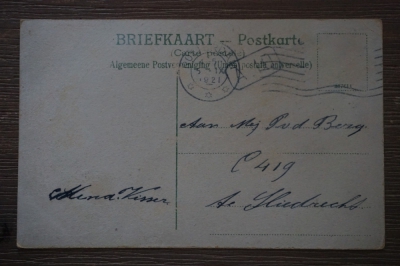 BRIEFKAART — Postkarte
(Carte postale)
Algemeene Postvereeniging (Union postale universelle)
Aan Mej P v d Berg
C 419
te Sliedrecht
Visser